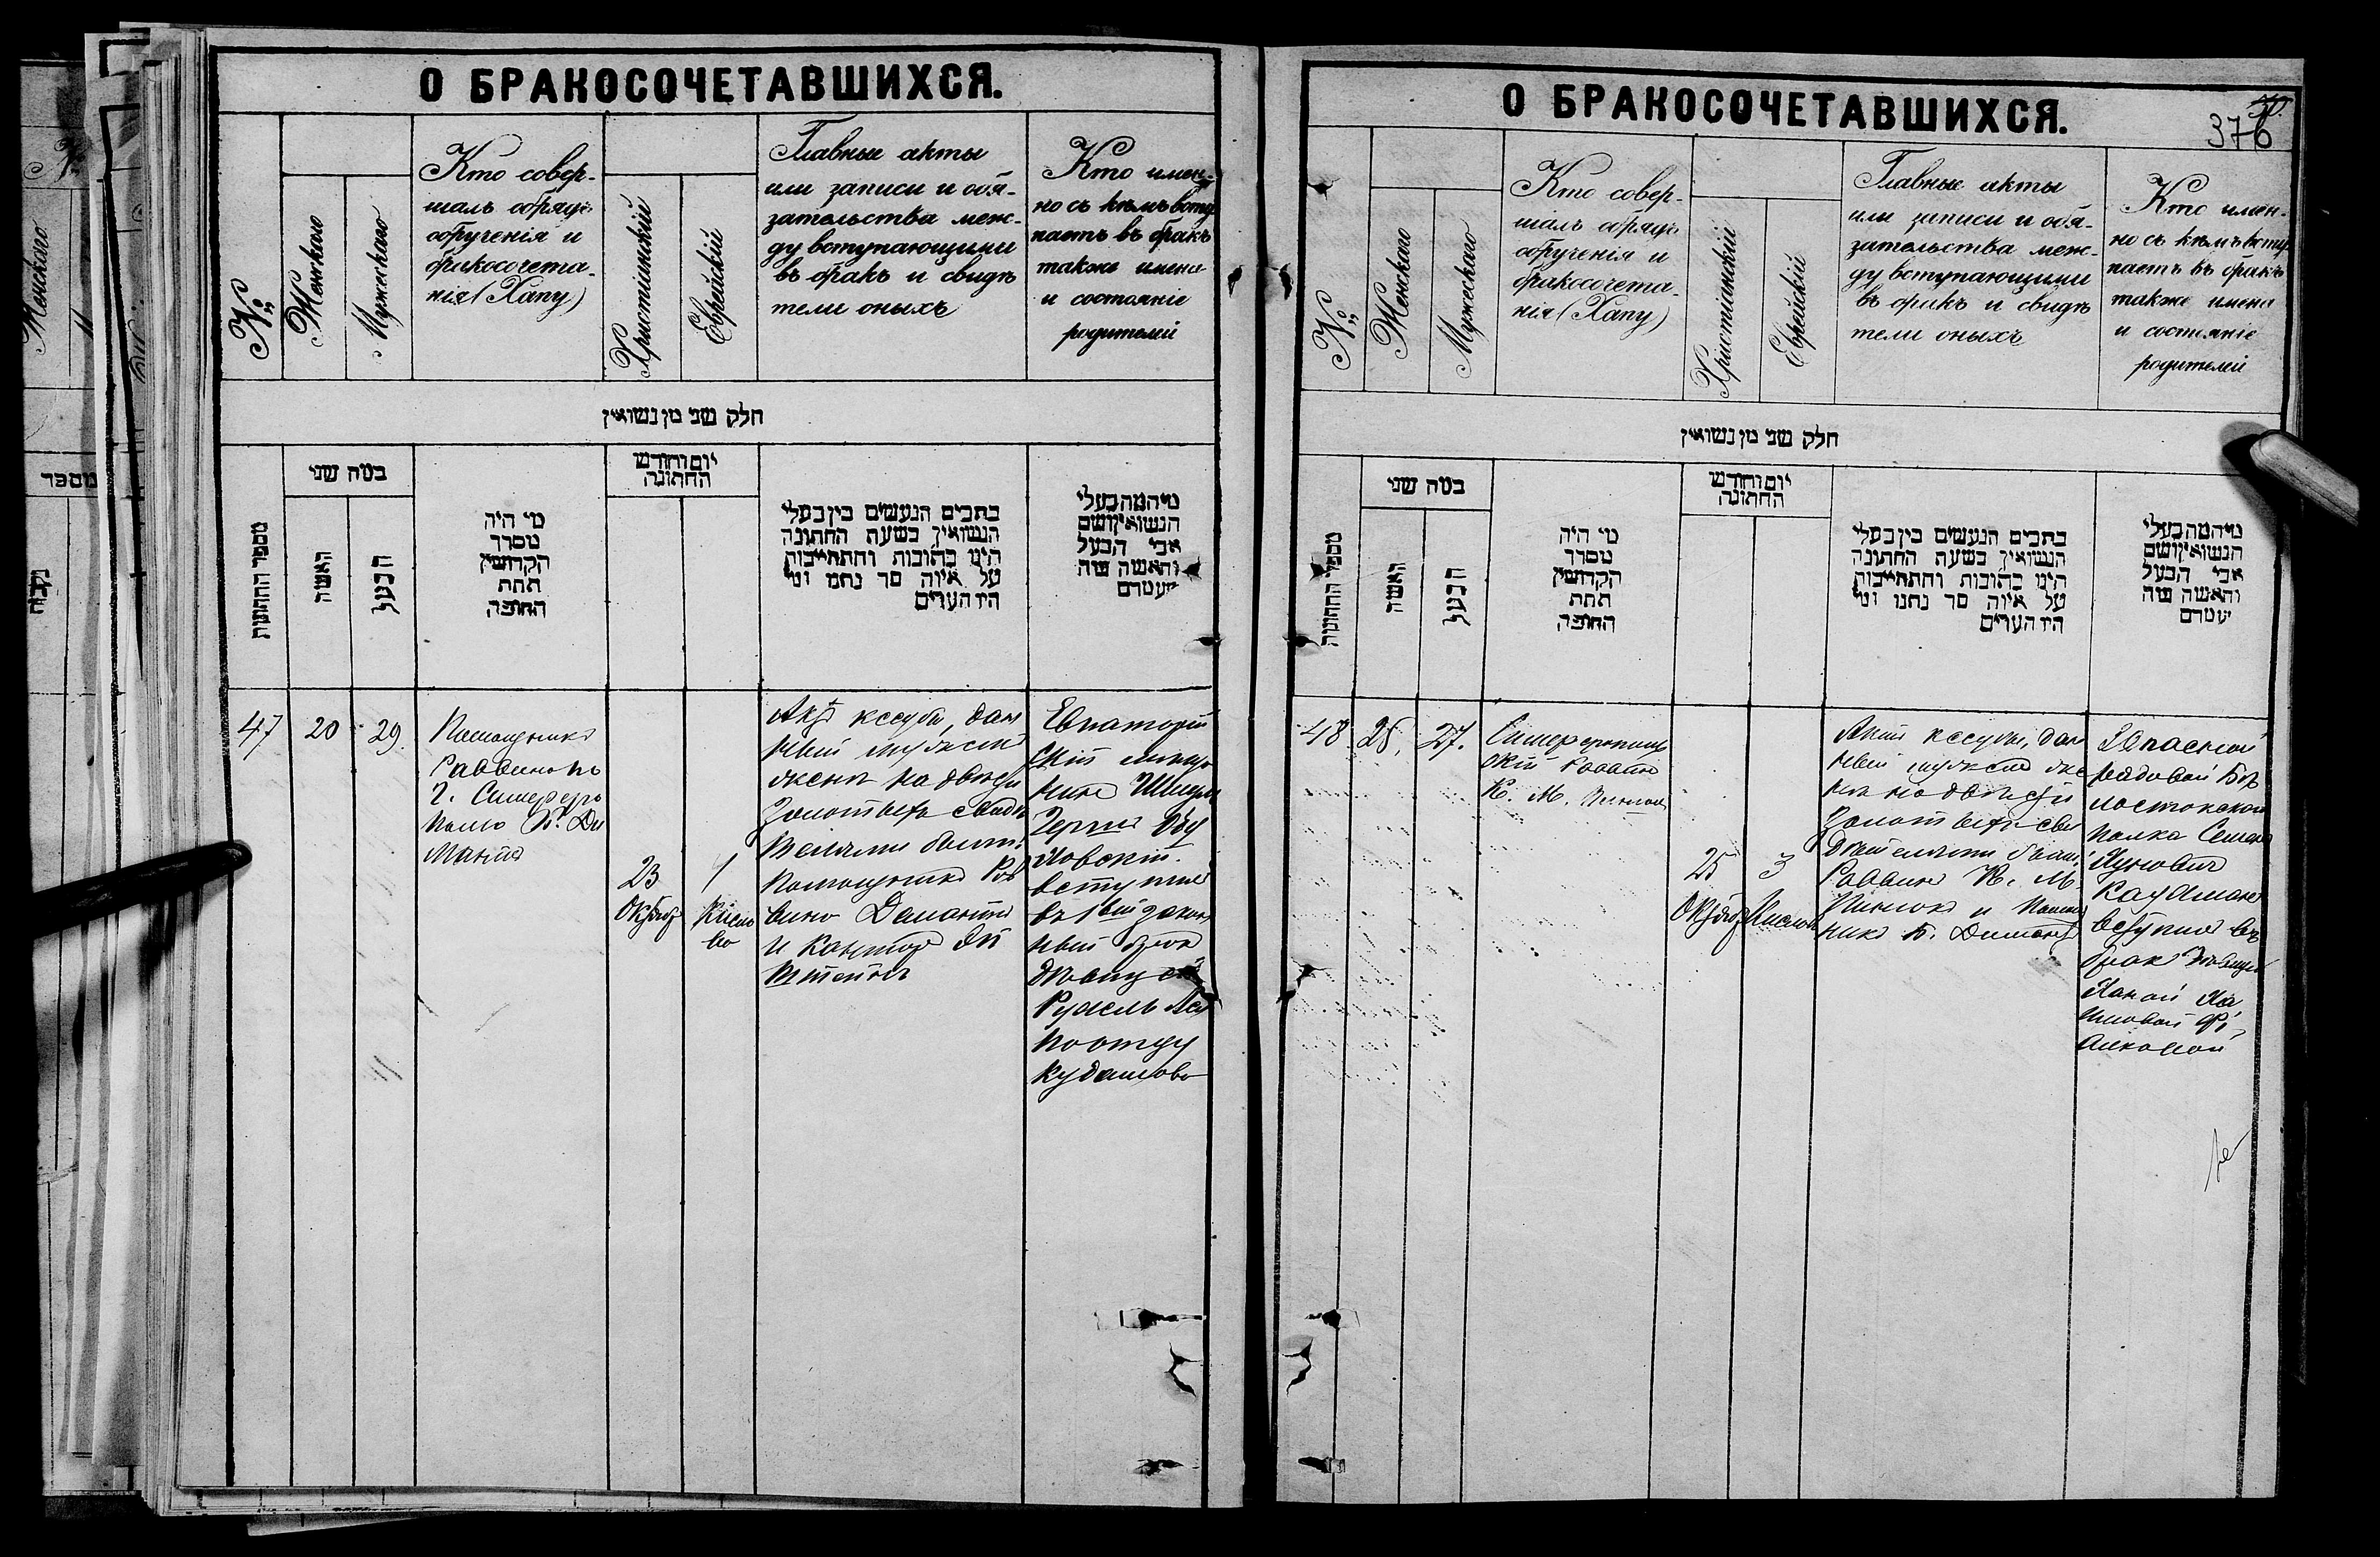 О БРАКОСОЧЕТАВШИХСЯ.
№
Женскаго
Мужескаго
Кто совер-
шалъ обрядъ
обрученія и
бракосочета-
нія (Хапу)
Христіанскій
Еврейскій
Главные акты
или записи и обя-
зательства меж-
ду вступающими
въ бракъ и свидѣ
тели оныхъ
Кто имен-
но съ кѣмъ всту
паетъ въ бракъ
также имена
и состояніе
родителей
חלק שני מן נשואין
מספר החתונות
במה שני
האשה
הבעל
מי היה
מסדר
הקדושין
תחת
החופה
יום וחודש
החתונה
כתבים הנעשים בין בעלי
הנשואין בשעת החתונה
היינו כתובות והתחייבות
על איזה סך נתנו ומי
היו העדים
מי המה בעלי
הנשואין ושם
אבי הבעל
והאשה ומה
מעמדם
47
20
29.
Помощникъ
Раввина по
г. Симферо
полю Б. Ди
мантъ
23
Октябр
1
Кисле
ва
Актъ кесубы, дан
ный мужемъ
женѣ на двѣсти
золотыхъ свидѣ
телями были:
Помощникъ Рав
вина Димантъ
и Канторъ Эп
штейнъ
Евпаторій
скій мѣща
нинъ
вступилъ
въ 1вый закон
ный бракъ
съ дѣвицей
по отцу
О БРАКОСОЧЕТАВШИХСЯ.
376
№
Женскаго
Мужескаго
Кто совер-
шалъ обрядъ
обрученія и
бракосочета-
нія (Хапу)
Христіанскій
Еврейскій
Главные акты
или записи и обя-
зательства меж-
ду вступающими
въ бракъ и свидѣ
тели оныхъ
Кто имен-
но съ кѣмъ всту
паетъ въ бракъ
также имена
и состояніе
родителей
חלק שני מן נשואין
מספר החתונות
במה שני
האשה
הבעל
מי היה
מסדר
הקדושין
תחת
החופה
יום וחודש
החתונה
כתבים הנעשים בין בעלי
הנשואין בשעת החתונה
היינו כתובות והתחייבות
על איזה סך נתנו ומי
היו העדים
מי המה בעלי
הנשואין ושם
אבי הבעל
והאשה ומה
מעמדם
48
27.
Симферополь
скій Раввинъ
К. М.
25
Октябр
3
Кислев
Актъ кесубы, дан
ный мужемъ же
нѣ на двѣсти
золотыхъ сви
дѣтелями были:
Раввинъ К. М.
и Помощ
никъ Б. Димантъ
Запасной
рядовой Бѣ
лостокскаго
полка
вступилъ въ
бракъ дѣвицей
Ханой Ха
имовой